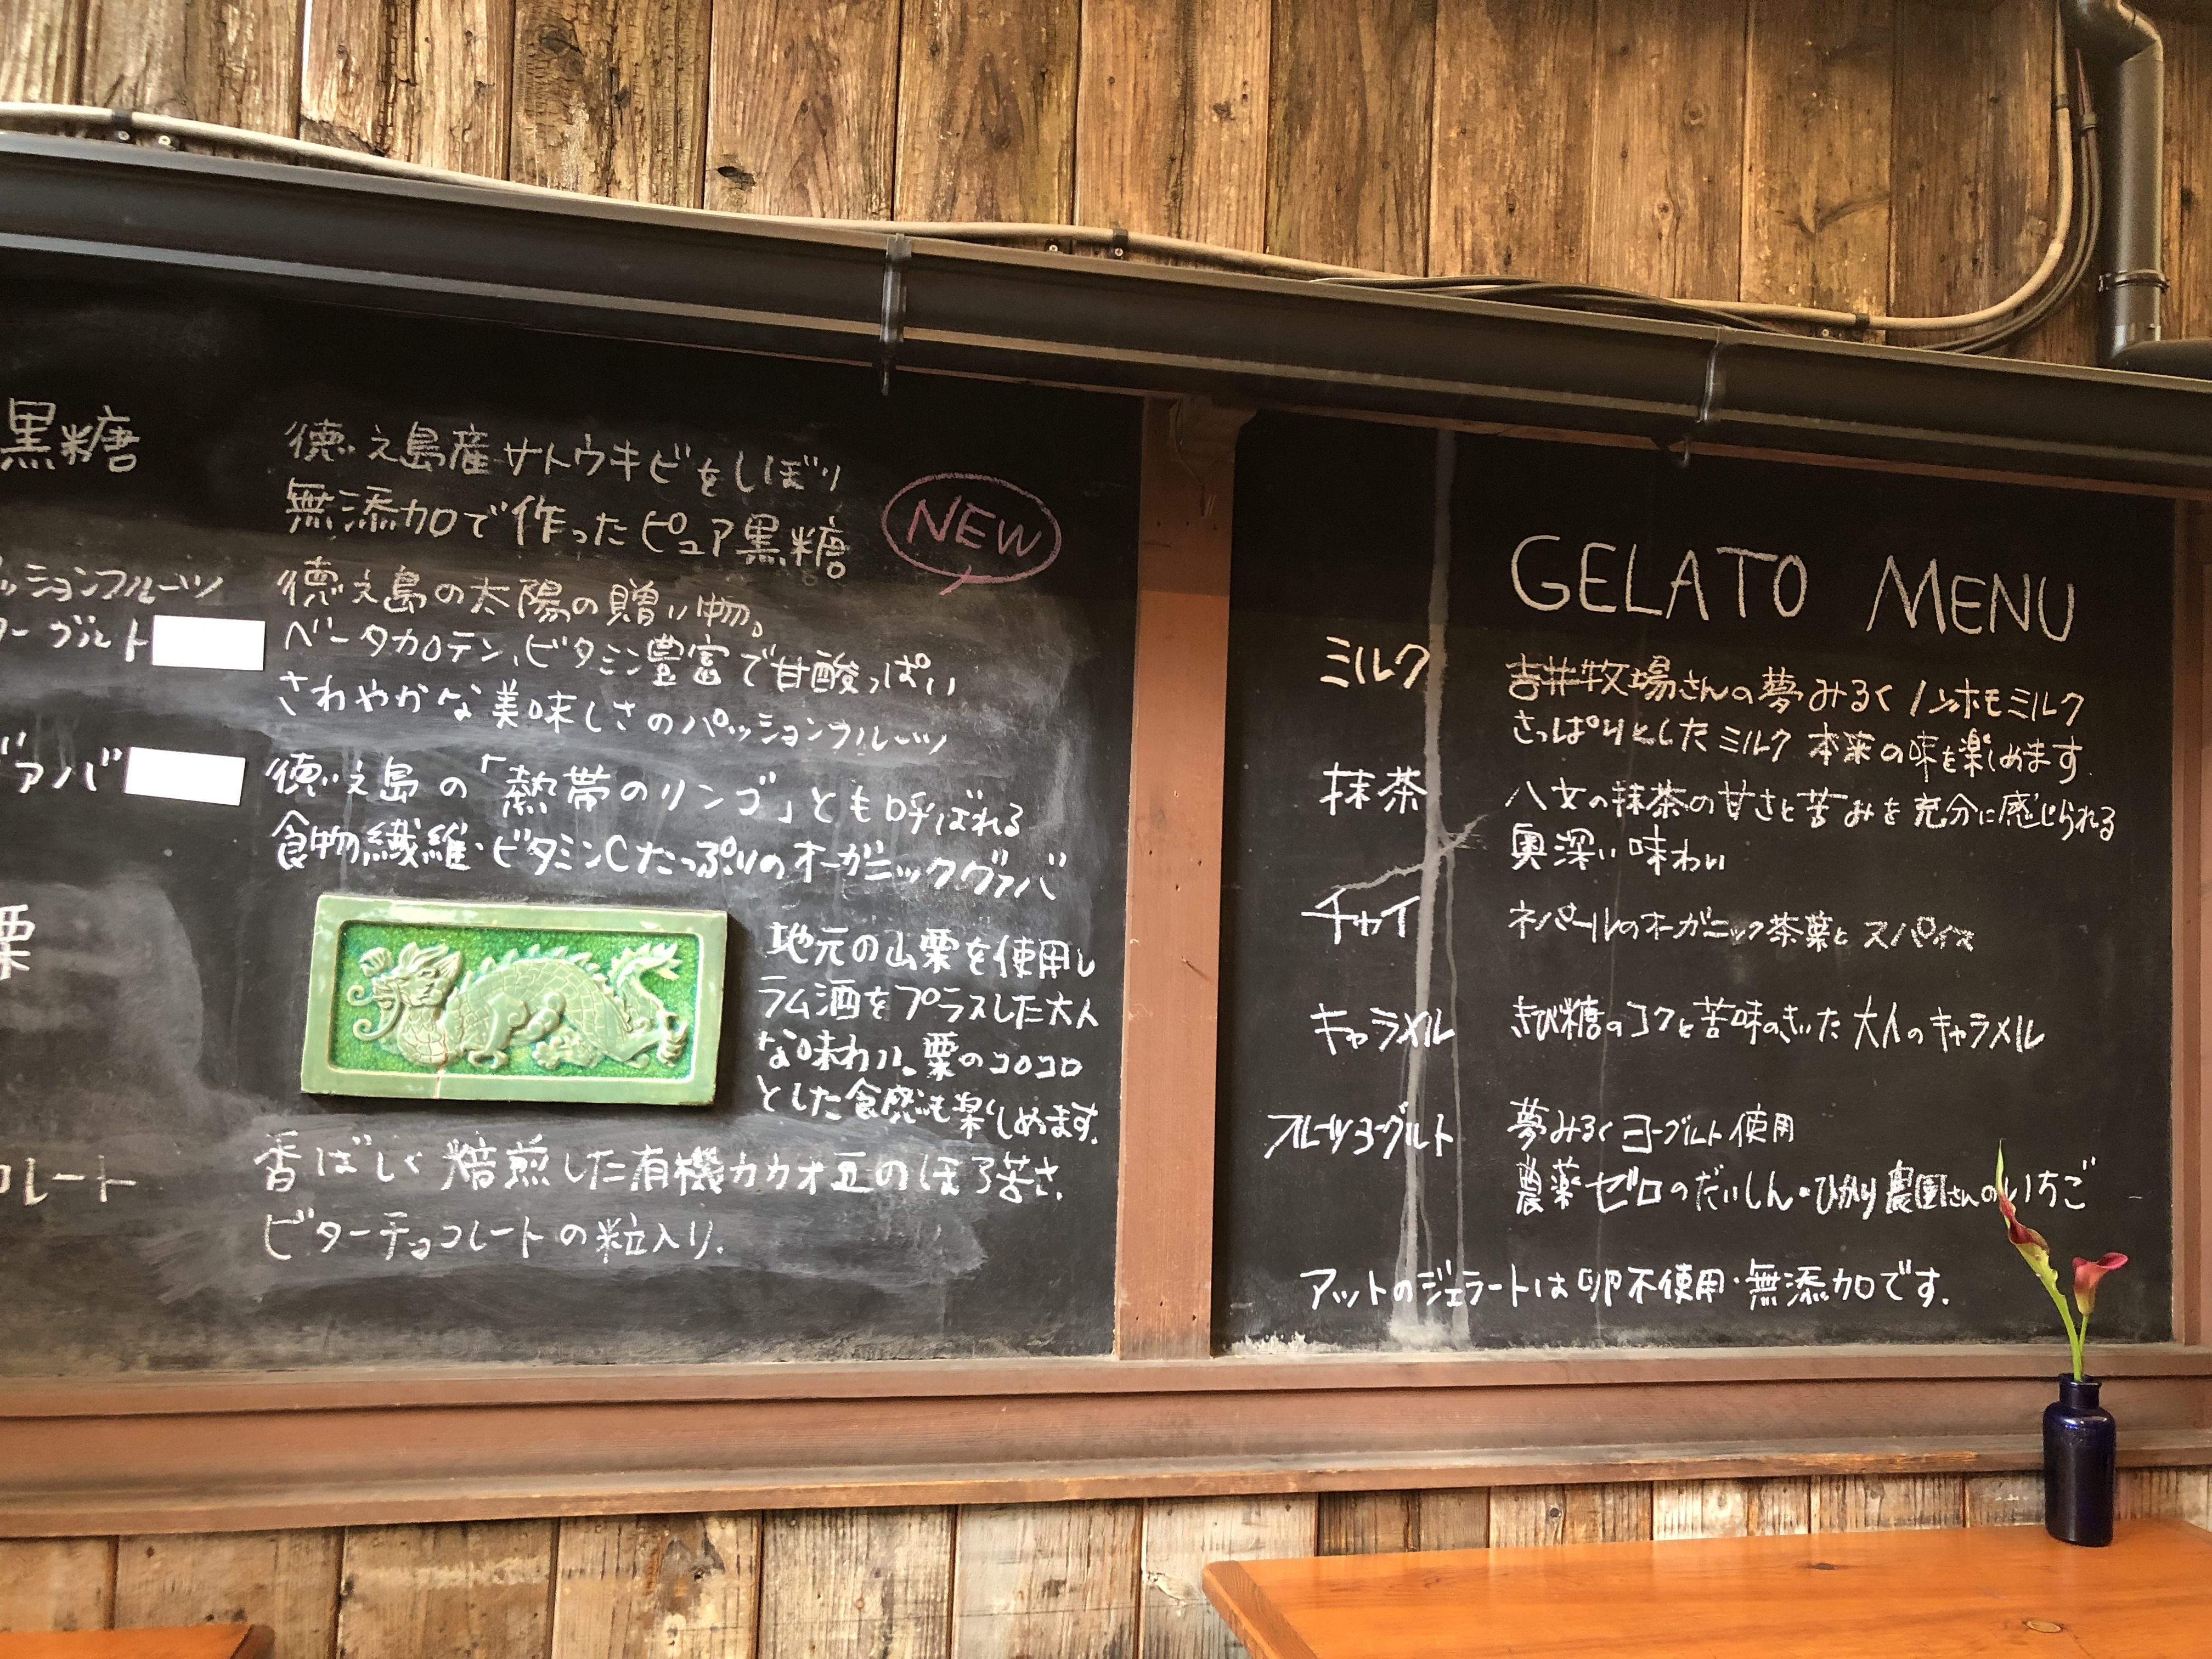 黒糖
徳之島産サトウキビをしぼり
無添加で作ったピュア黒糖
NEW
ッションフルーツ
ーグルト
徳之島の太陽の贈い物。
ベータカロテン、ビタミン豊富で甘酸っぱい
さわやかな美味しさのパッションフルーツ
ァバ
徳之島の「熱帯のリンゴ」とも呼ばれる
食物繊維・ビタミンCたっぷりのオーガニックグァバ
栗
地元の山栗を使用し
ラム酒をプラスした大人
な味わい。栗のコロコロ
とした食感も楽しめます。
コレート
香ばしく焙煎した有機カカオ豆のほろ苦さ。
ビターチョコレートの粒入り。
GELATO MENU
ミルク
吉井牧場さんの夢みるくノンホモミルク
さっぱりとしたミルク本来の味を楽しめます。
抹茶
八女の抹茶の甘さと苦みを充分に感じられる
奥深い味わい
チャイ
ネパールのオーガニック茶葉とスパイス
キャラメル
きび糖のコクと苦味のきいた大人のキャラメル
フルーツヨーグルト
夢みるくヨーグルト使用
農薬ゼロのだいしん・ひかり農園さんのいちご
アットのジェラートは卵不使用・無添加です。